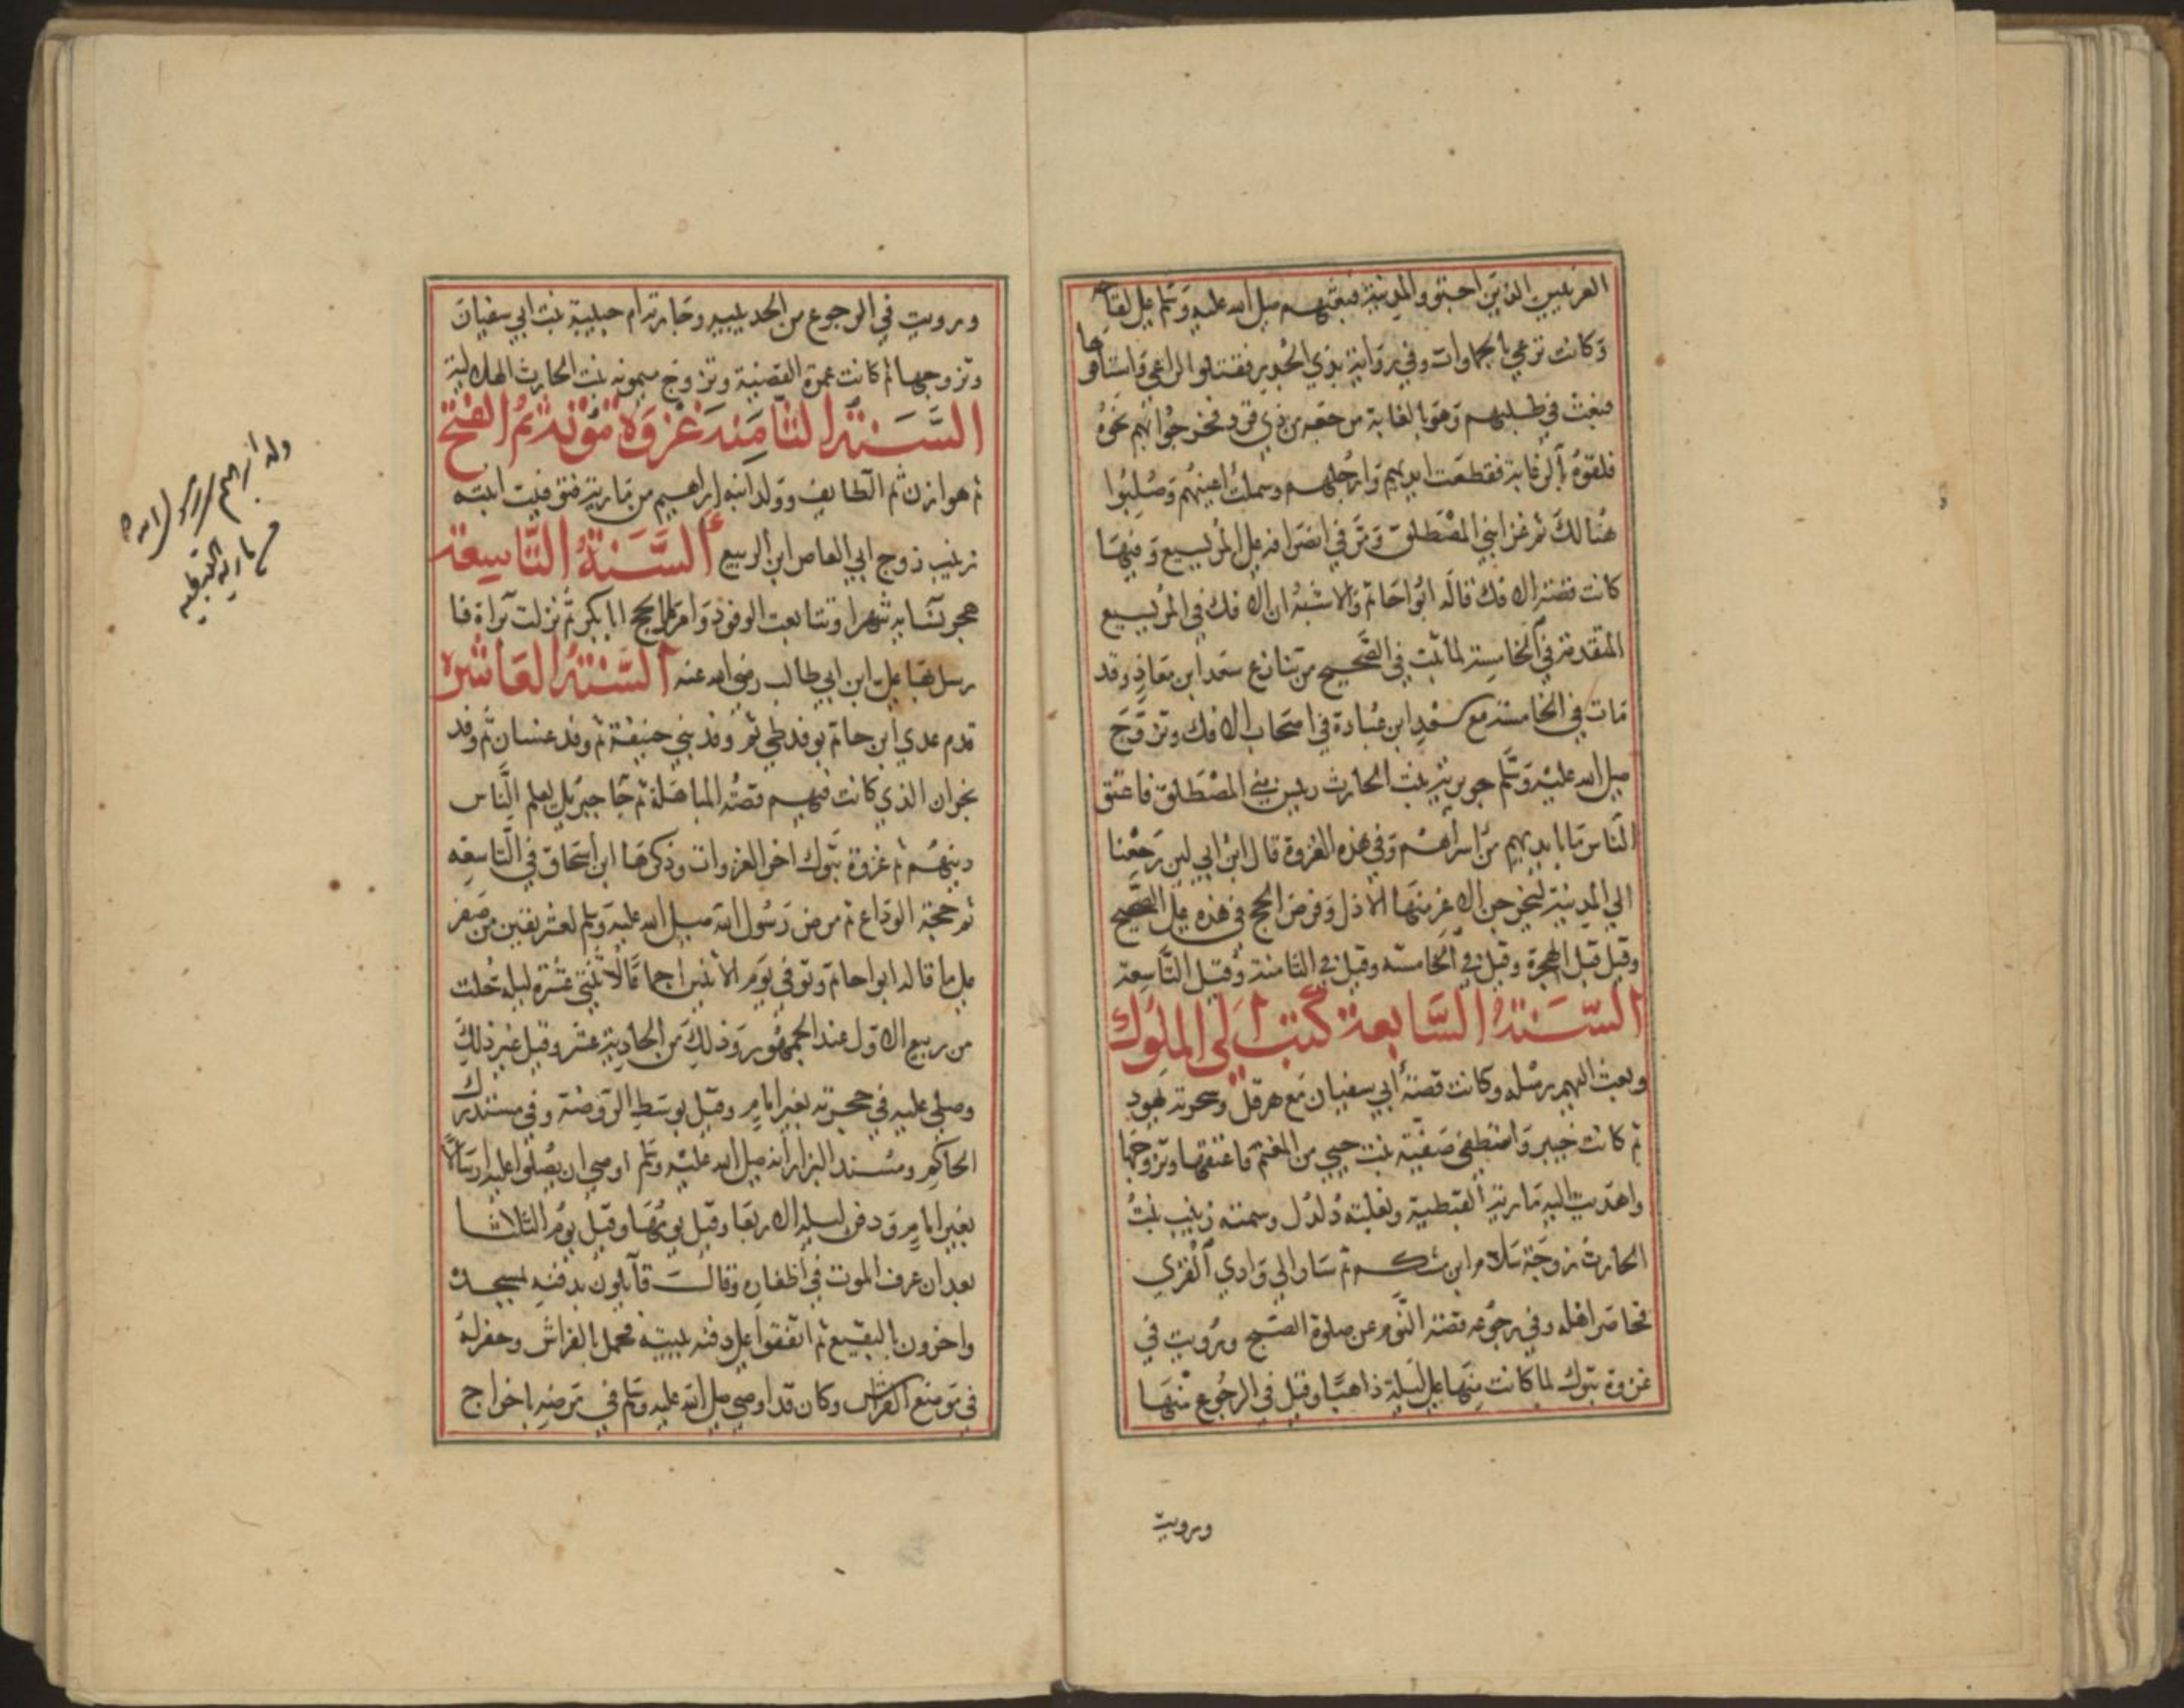 العرنيين الذين اجتووا المدينة فبعثهم صلى الله عليه وسلم على لقاحه
وكانت ترعى بالجماوات وفي رواية بذي الجدر فقتلوا الراعي واستاقوها
فبعث في طلبهم وهو بالغابة من حقبه من ذي قرد فخرجوا بهم نحوه
فلقوه بالرغابة فقطعت ايديهم وارجلهم وسملت اعينهم وصلبوا
هنالك ثم غزا بني المصطلق ومر في انصرافه على المريسيع وفيها
كانت قصة الافك قاله ابوا حاتم والاشبه ان الافك في المريسيع
المتقدمة في الخامسة لما ثبت في الصحيح من تنازع سعد ابن معاذ وقد
مات في الخامسة مع سعد ابن عبادة في اصحاب الافك وتزوج
صلى الله عليه وسلم جويرية بنت الحارث رييس بني المصطلق فاعتق
الناس ما بايديهم من اسراهم وفي هذه الغزوة قال ابن ابي لين رجعنا
الي المدينة ليخرجن الاعز منها الاذل وفرض الحج في هذه على الصحيح
وقيل قبل الهجرة وقيل في الخامسة وقيل في الثامنة وقيل التاسعة
السنة السابعة كتب الى الملوك
وبعث اليهم رسله وكانت قصة ابي سفيان مع هرقل وسحرته يهود
ثم كانت خيبر واصطفى صفية بنت حيي من المغنم فاعتقها وتزوجها
واهديت اليه مارية القبطية وبغلته دلدل وسمته زينب بنت
الحارث زوجة سلام ابن مشكم ثم سار الي وادي القرى
فحاصر اهله وفي رجوعه قصة النوم عن صلوة الصبح ورويت في
غزوة تبوك لما كانت منها على ليلة ذاهبا وقيل في الرجوع منها
ورويت
ورويت في الرجوع من الحديبيه وجاءته ام حبيبة بنت ابي سفيان
وتزوجها ثم كانت عمرة القضية وتزوج ميمونه بنت الحارث الهلالية
السنة الثامنة غزوة مؤتة ثم الفتح
ثم هوازن ثم الطايف وولد ابنه ابراهيم من مارية وتوفيت ابنته
زينب زوج ابي العاص ابن الربيع السنة التاسعة
هجر نساءه شهرا وتتابعت الوفود وامر على الحج ابا بكر ثم نزلت براءة فا
رسل بها على ابن ابي طالب رضي الله عنه السنة العاشرة
قدم عدي ابن حاتم بوفد طي ثم وفد بني حنيفة ثم وفد غسان ثم وفد
نجران الذي كانت فيهم قصة المباهلة ثم جا جبريل يعلم الناس
دينهم ثم غزوة تبوك اخر الغزوات وذكرها ابن اسحاق في التاسعه
ثم حجة الوداع ثم مرض رسول الله صلى الله عليه وسلم لعشر بقين من صفر
على ما قاله ابوا حاتم وتوفي يوم الاثنين اجماعا لاثنتي عشرة ليلة خلت
من ربيع الاول عند الجمهور وذلك من الحادية عشر وقيل غير ذلك
وصلي عليه في حجرته بغير امام وقيل بوسط الروضة وفي مستدرك
الحاكم ومسند البزار انه صلى الله عليه وسلم اوصى ان يصلوا عليه ارسالا
بغير امام ودفن ليلة الاربعا وقيل يومها وقيل يوم الثلاثا
بعد ان عرف الموت في اظفاره وقالت قايلون بدفنه بمسجده
واخرون بالبقيع ثم اتفقوا على دفنه ببيته فحمل بالفراش وحفر له
في موضع الفراش وكان قد اوصى صلى الله عليه وسلم في مرضه باخراج
ولد ابراهيم رسول الله
من مارية القبطيه